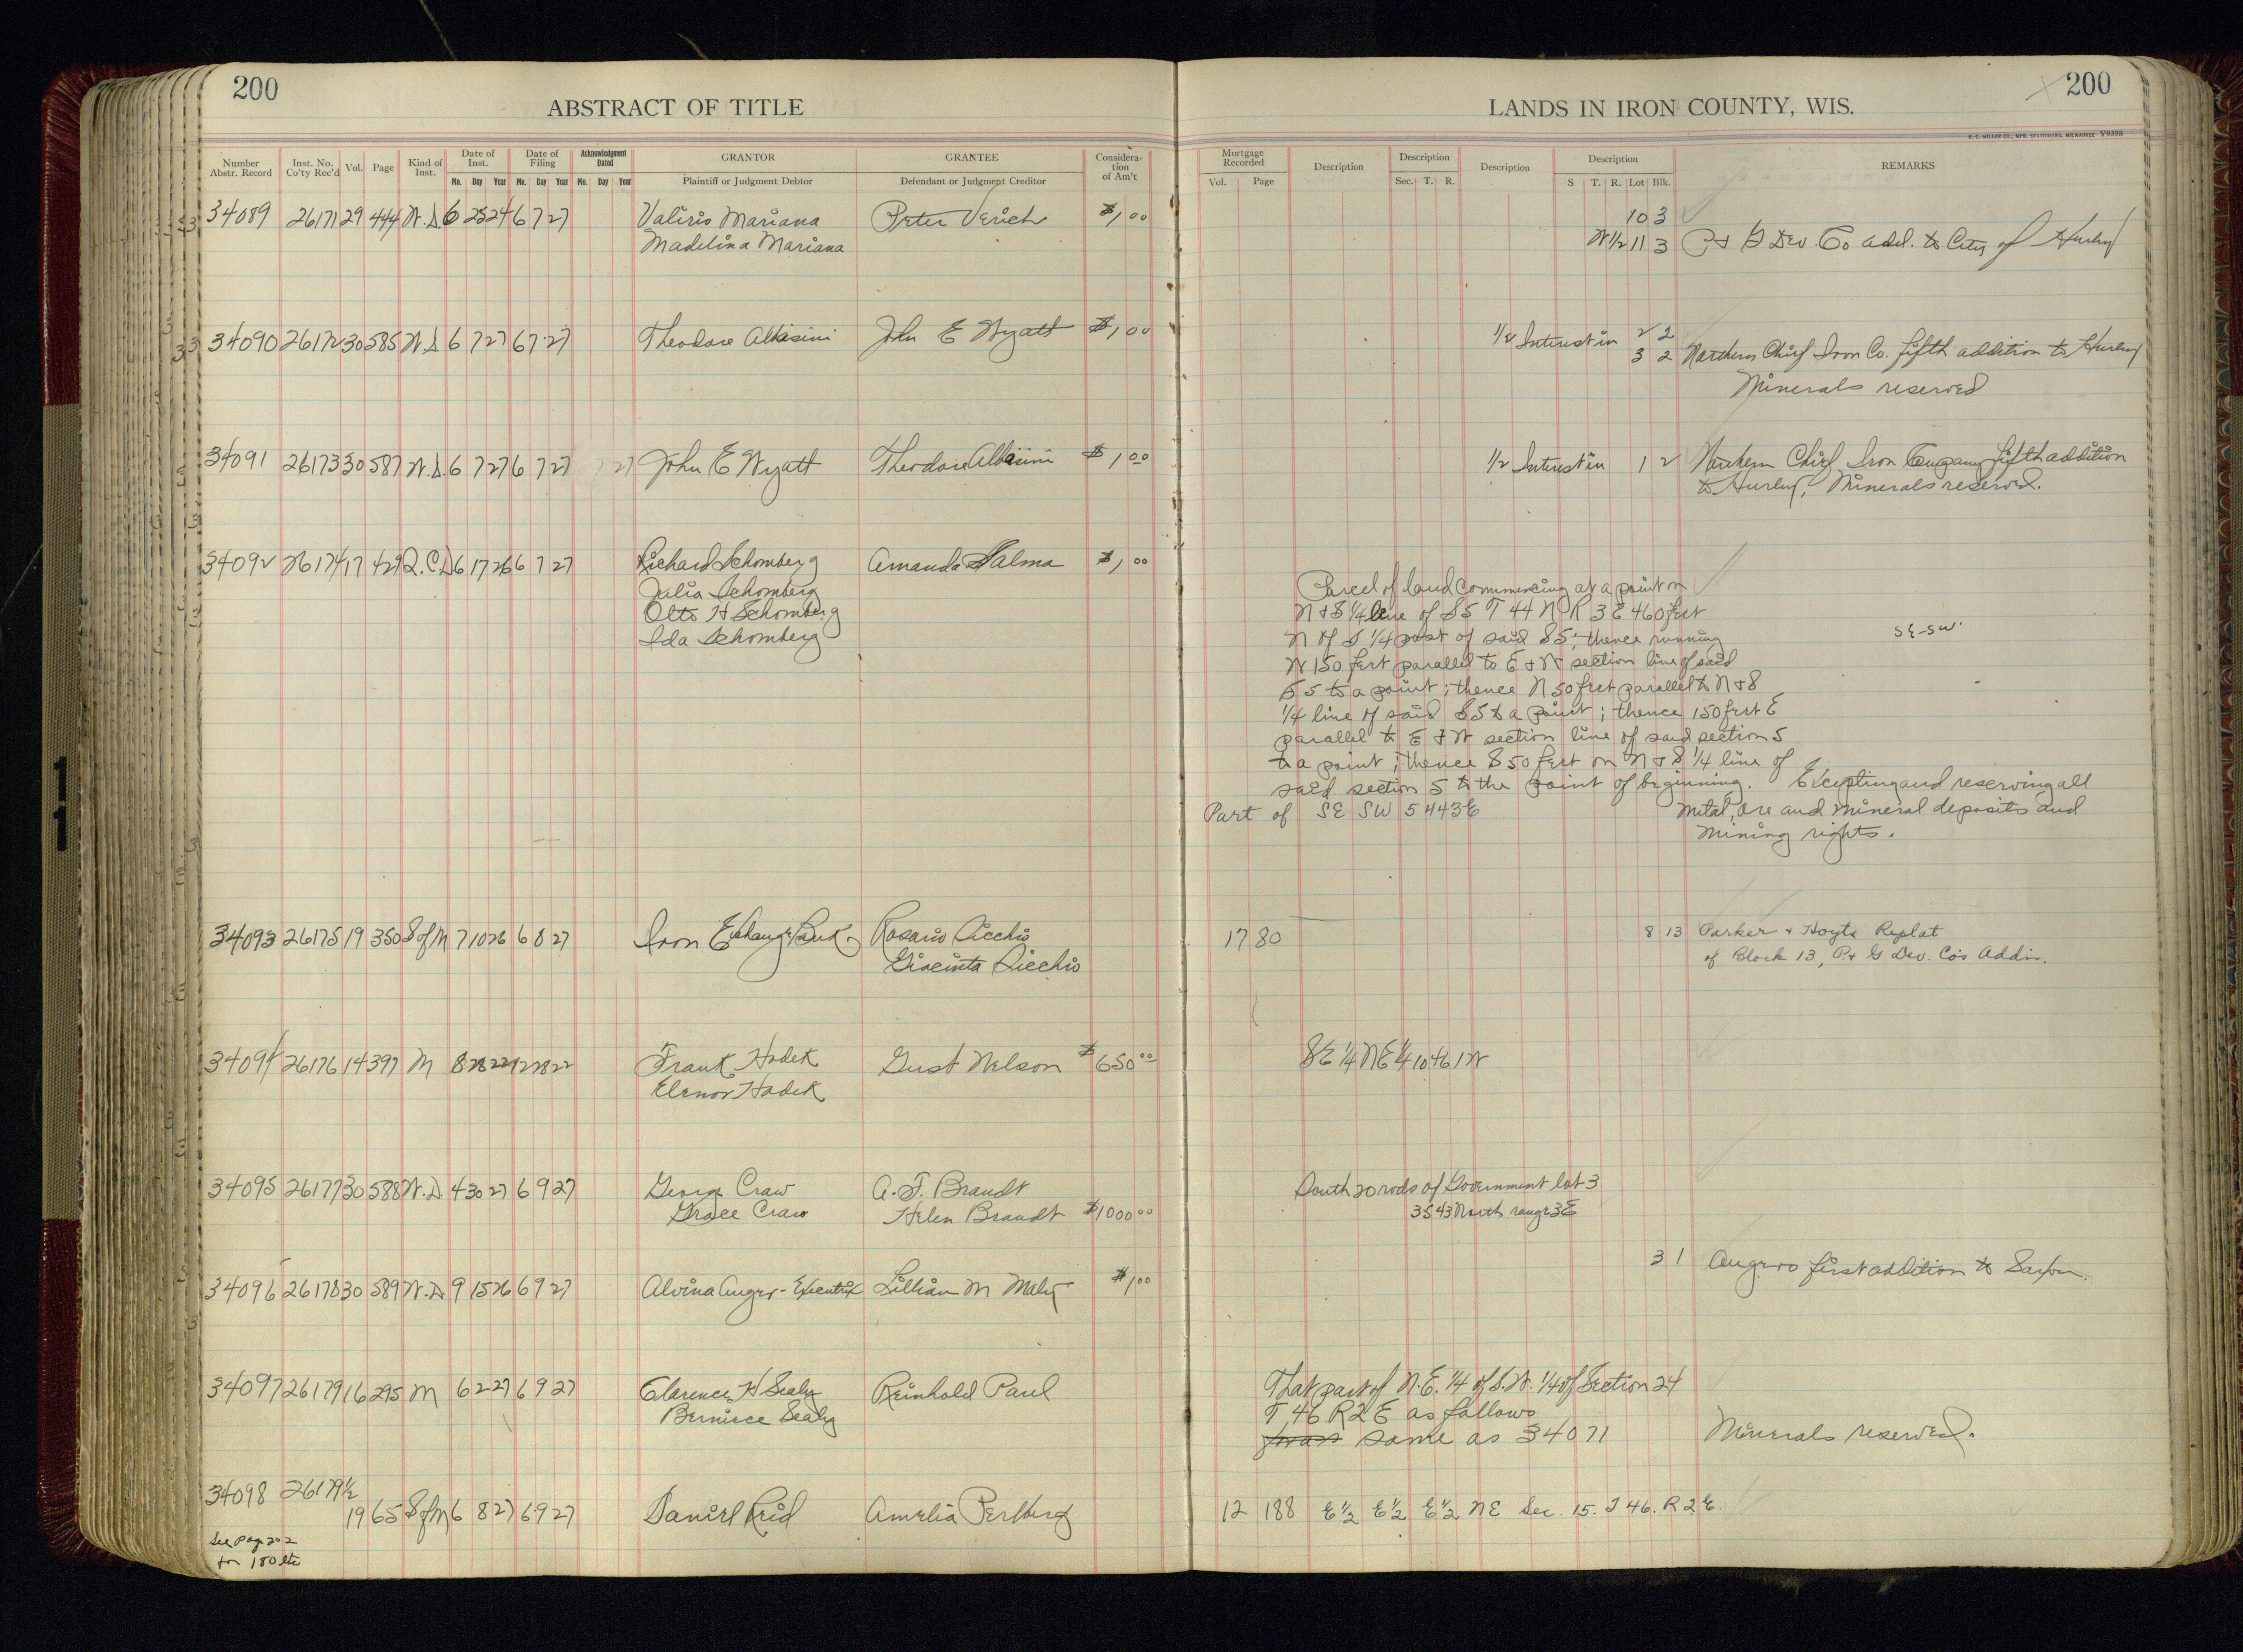 200
ABSTRACT OF TITLE
Number Abstr. Record Inst. No. Co'ty Rec'd Vol. Page Kind of Inst. Date of Inst. Date of Filing Acknowledgment Dated GRANTOR GRANTEE Considera-tion of Am't
Mo. Day Year Mo. Day Year Mo. Day Year Plaintiff or Judgment Debtor Defendant or Judgment Creditor
34089 26171 29 444 W.D. 6 25 24 6 7 27 Valirio Mariana Peter Verich $1,00
Madelina Mariana
34090 26172 30 585 W.D. 6 7 27 6 7 27 Theodore Albasini John E Wyatt $1,00
34091 26173 30 587 W.D. 6 7 27 6 7 27 John E Wyatt Theodore Albasini $1,00
34092 26174 17 429 Q.C.D 6 17 26 6 7 27 Richard Schomberg Amanda Salma $1,00
Julia Schomberg
Otto H Schomberg
Ida Schomberg
34093 26175 19 350 S of M 7 10 26 6 8 27 Iron Exchange Bank Rosario Sicchio
Giacinta Sicchio
34094 26176 14 397 M 8 28 22 12 28 22 Frank Hadek Gust Nelson $650 00
Elenor Hadek
34095 26177 30 588 W.D. 4 30 27 6 9 27 George Craw A. F. Brandt
Grace Craw Helen Brandt $1000 00
34096 26178 30 589 W.D. 9 15 26 6 9 27 Alvina Anger - Executrix Lillian M Maly $1,00
34097 26179 16 295 M 6 2 27 6 9 27 Clarence H Sealy Reinhold Paul
Bernice Sealy
34098 26179 1/2
19 65 S of M 6 8 27 6 9 27 Daniel Reid Amelia Perlberg
See page 202
for 180 etc
200
LANDS IN IRON COUNTY, WIS.
H. C. MILLER CO., MFG. STATIONERS, MILWAUKEE Y9398
Mortgage Recorded Description Description Description Description REMARKS
Vol. Page Sec. T. R. S T. R. Lot Blk.
10 3
W 1/2 11 3 P & G Dev. Co add. to City of Hurley
1/2 Interest in 2 2
3 2 Northern Chief Iron Co. fifth addition to Hurley
Minerals reserved
1/2 Interest in 1 2 Northern Chief Iron Company fifth addition
to Hurley, Minerals reserved.
Parcel of land commencing at a point on
N & S 1/4 line of S 5 T 44 N R 3 E 460 feet
N of S 1/4 post of said S 5; thence running SE-SW
W 150 feet parallel to E & W section line of said
S 5 to a point; thence N 50 feet parallel to N & S
1/4 line of said S 5 to a point; thence 150 feet E
parallel to E & W section line of said section 5
to a point; thence S 50 feet on N & S 1/4 line of
said section 5 to the point of beginning. Excepting and reserving all
Part of SE SW 5 44 3E metal, ore and mineral deposits and
mining rights.
17 80 8 13 Parker & Hoyts Replat
of Block 13, P & G Dev. Co's Addn.
SE 1/4 NE 1/4 10 46 1W
South 20 rods of Government lot 3
35 43 North range 3E
3 1 Angers first addition to Saxon.
That part of N.E. 1/4 of S.W. 1/4 of Section 24
T 46 R 2 E as follows
same as 34071 Minerals reserved.
12 188 E 1/2 E 1/2 E 1/2 NE Sec. 15. T 46. R 2 E.